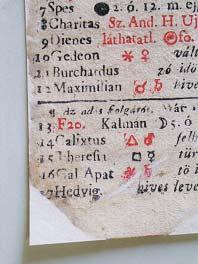 7 Spes 2. ó. 12. m. ej
8 Charitas Sz. And. H. Uj
9 Dienes láthatatl. fo.
10 Gedeon ⚹ ♀ vált
11 Burchardus zó idő
12 Maximilian ♂ ♄ hives
¶ Az adó
13 F20. Kalmán ☽ 5. ó
14 Calixtus △ ♂ felh
15 Theresia □ ☿ tür
16 Gal Apat ⚹ ♄ tö i
17 Hedvig. hives leve